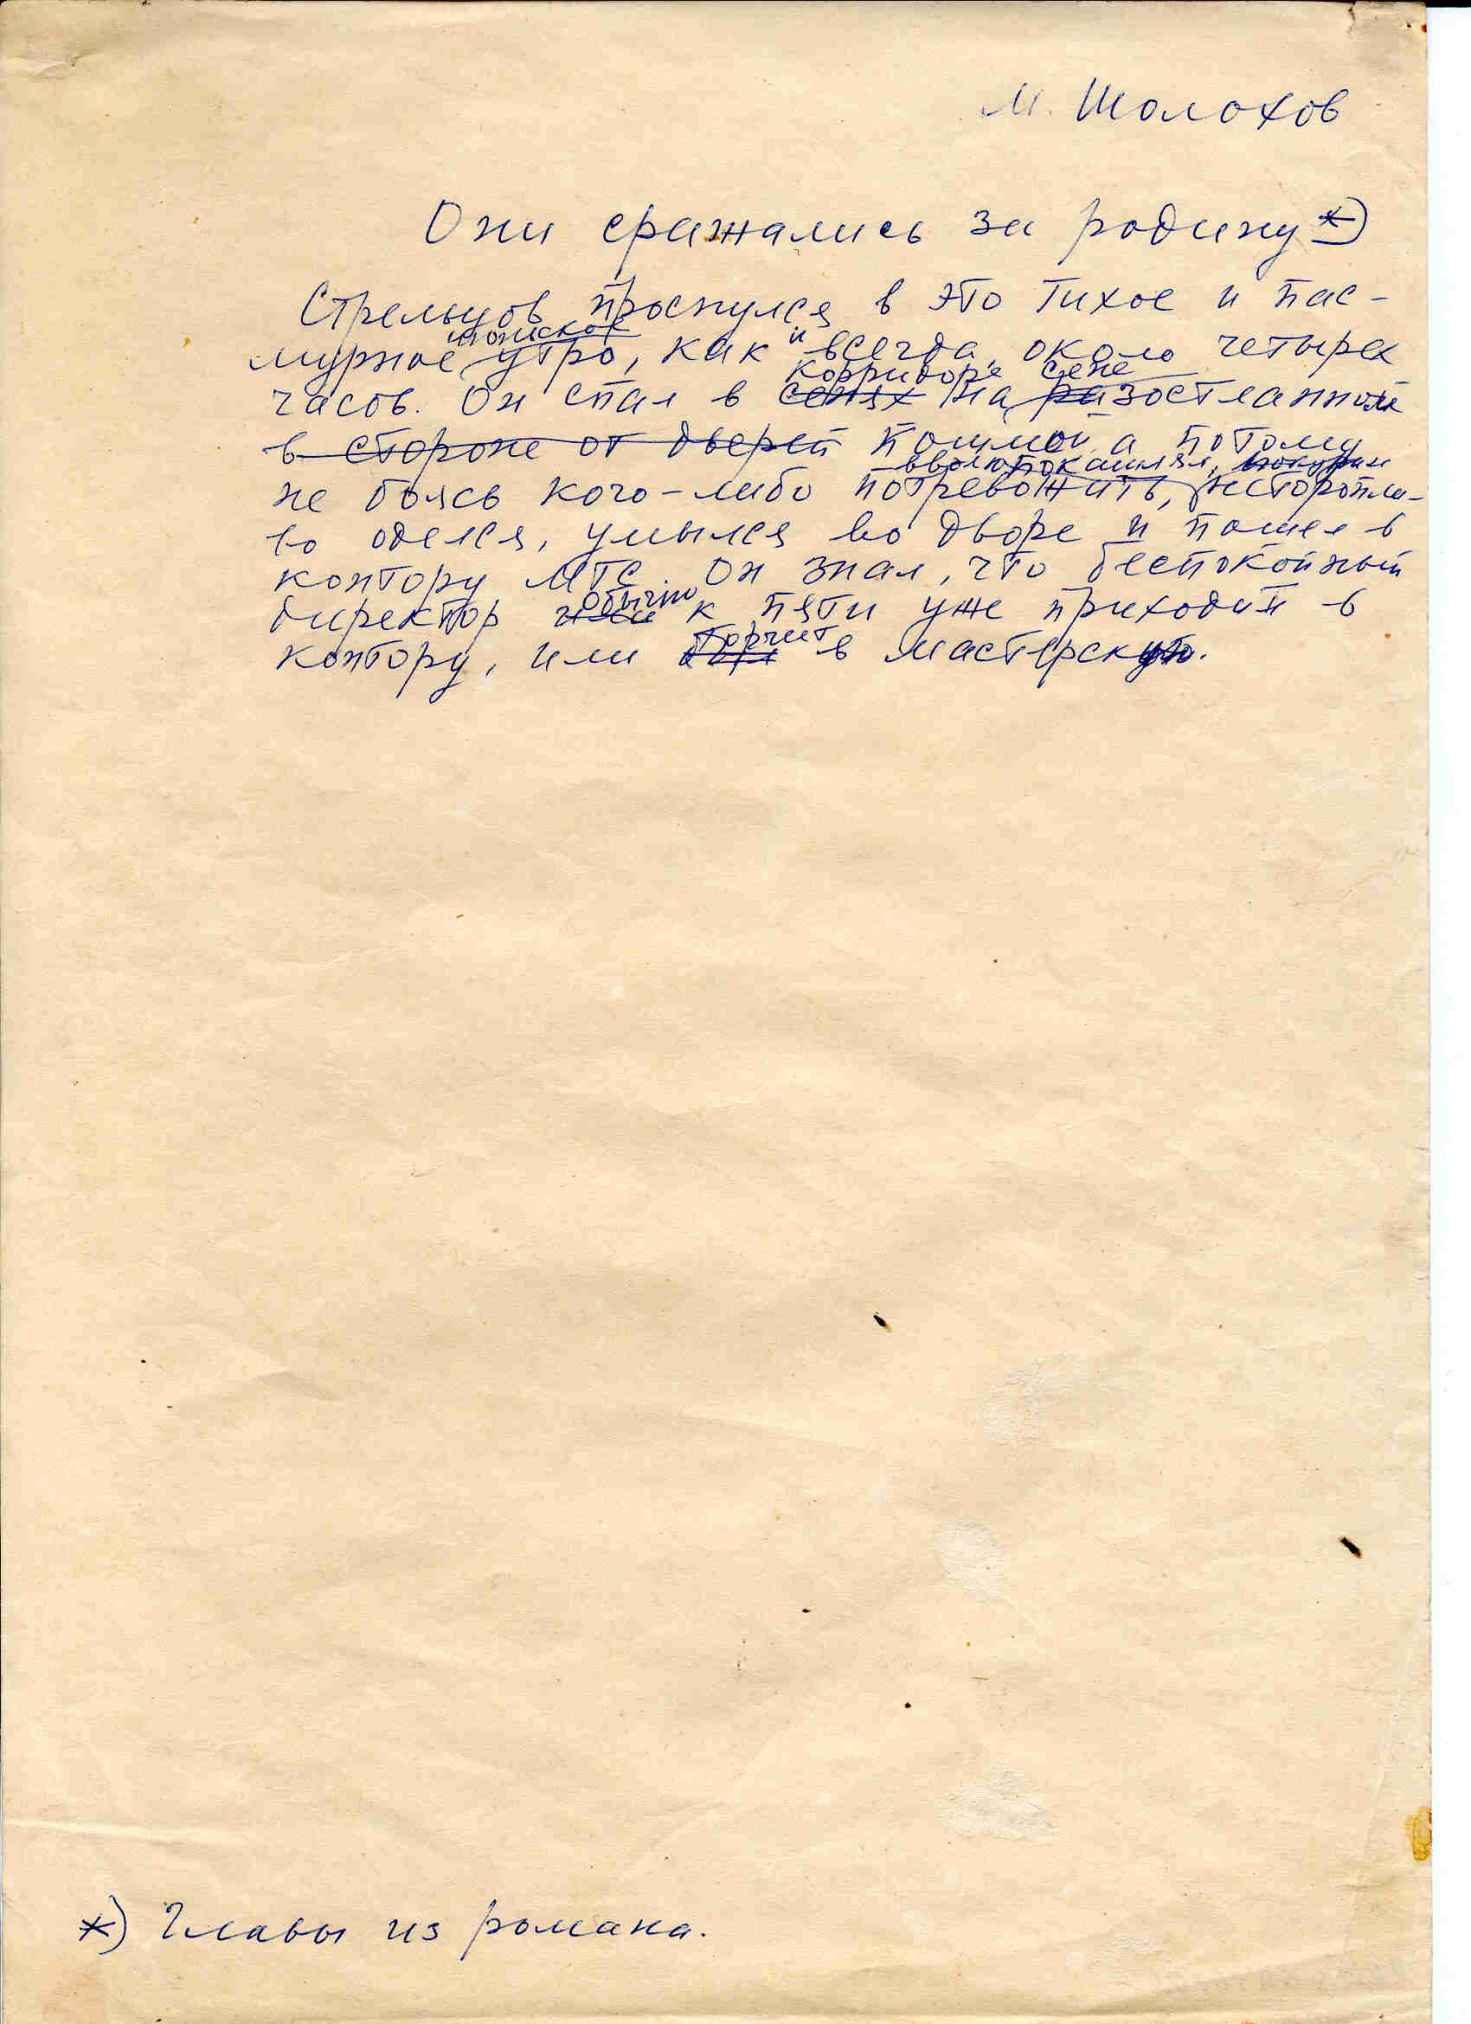 М. Шолохов
Они сражались за родину *)
Стрельцов проснулся в это тихое и пас-
июньское и
мурное утро, как всегда, около четырех
корридоре сене
часов. Он спал в сенях на разостланной
в стороне от дверей кошмой а потому
вволю покашлял, покурил
не боясь кого-либо потревожить, нетороплі-
во оделся, умылся во дворе и пошел в
контору МТС. Он знал, что беспокойный
обычно
директор к пяти уже приходит в
торчит
контору, или в мастерскую.
*) Главы из романа.